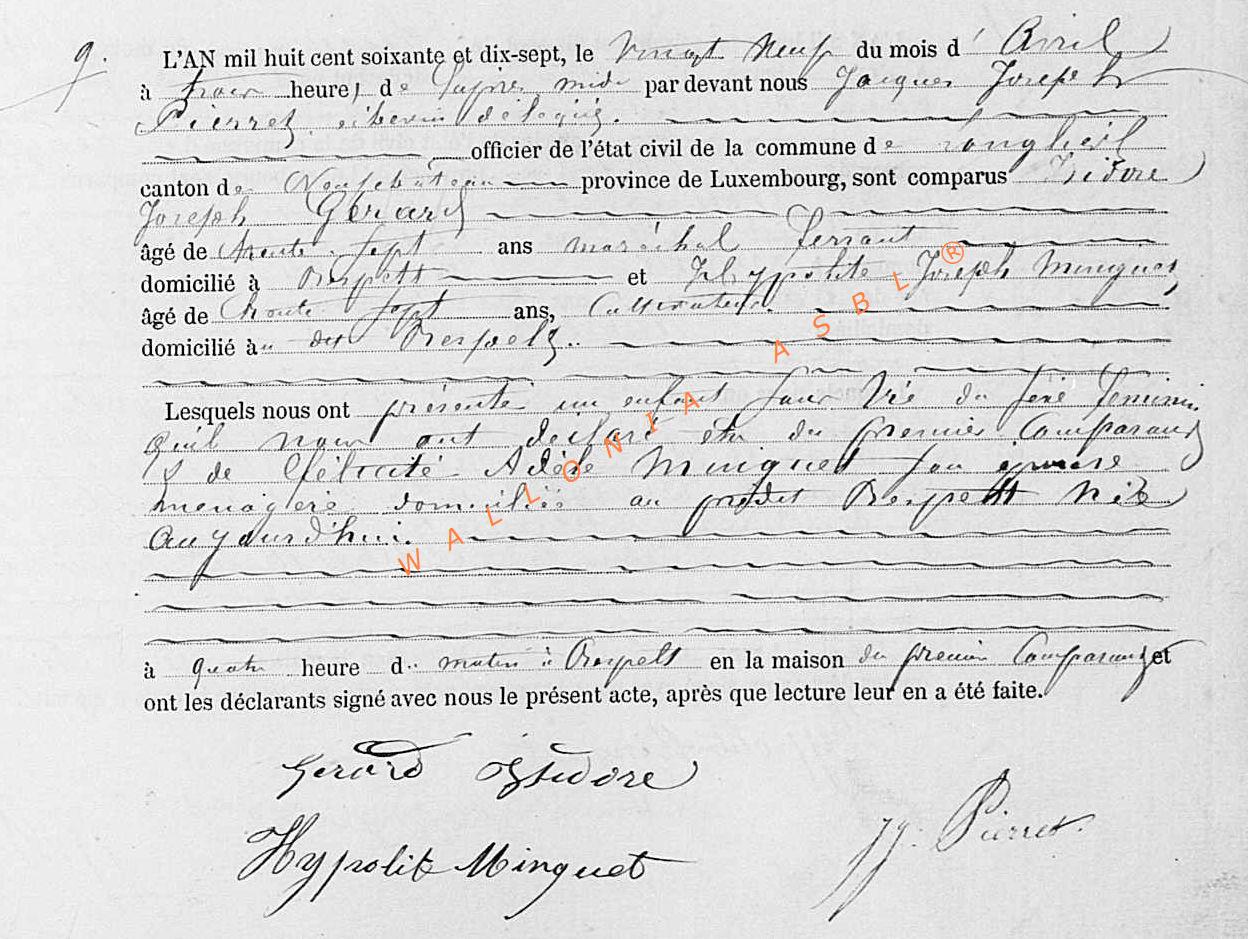 9.
L'AN mil huit cent soixante et dix-sept, le Vingt Neuf du mois d' Avril
à trois heures de l'après midi par devant nous Jacques Joseph
Pierret, échevin délégué.
officier de l'état civil de la commune de Longlier
canton de Neufchâteau province de Luxembourg, sont comparus Isidore
Joseph Gérard
âgé de trente sept ans maréchal ferrant
domicilié à Respelt et Hyppolite Joseph Minguet,
âgé de trente sept ans, Cultivateur.
domicilié à Respelt.
Lesquels nous ont présenté un enfant du sexe féminin
qu'il nous ont déclaré être du premier Comparant
& de Félicité Adèle Minguet son épouse
menagère domiciliés au predit Respelt née
aujourd'hui.
à quatre heure du matin à Respelt en la maison du premier Comparant et
ont les déclarants signé avec nous le présent acte, après que lecture leur en a été faite.
Gerard Isidore
Hypolite Minguet
JJ. Pierret.
WALLONIA ASBL ®